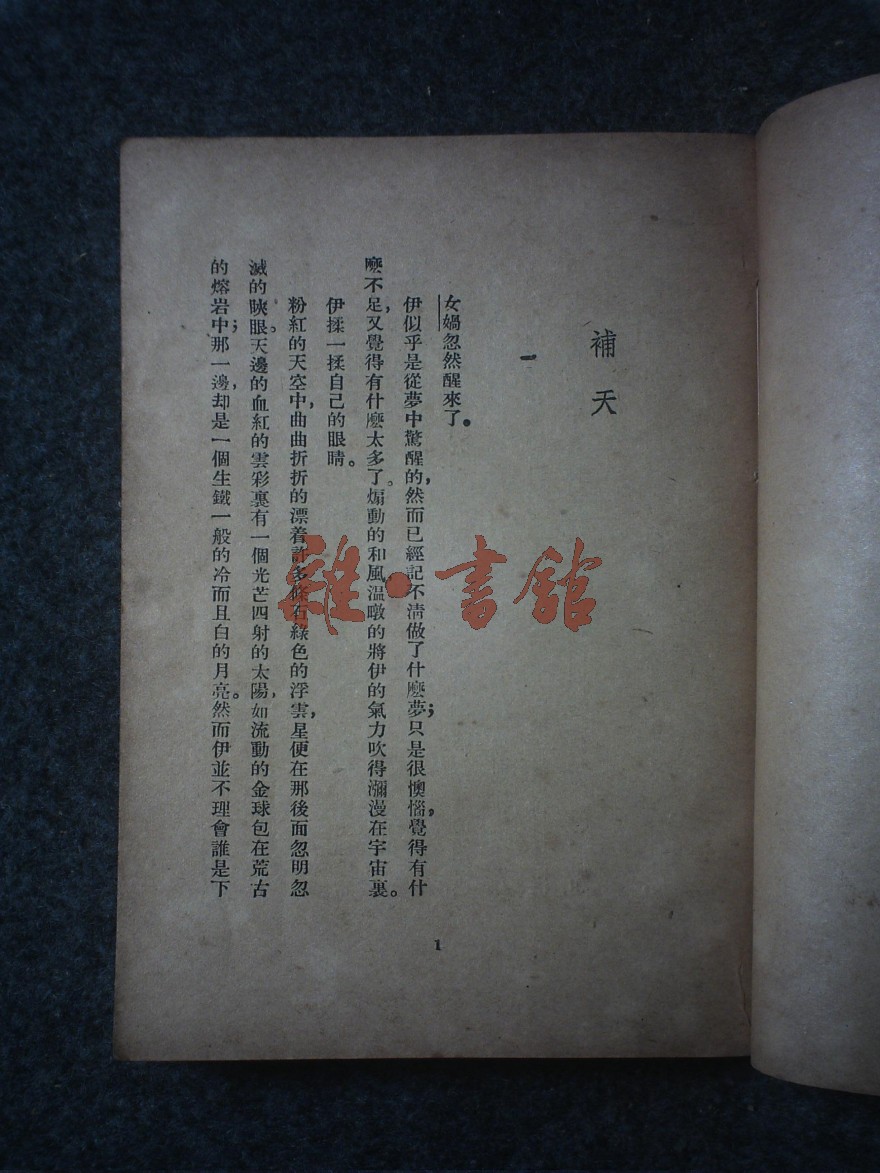 補天
一
女媧忽然醒來了。
伊似乎是從夢中驚醒的，然而已經記不淸做了什麽夢；只是很懊惱，覺得有什
麽不足，又覺得有什麽太多了。煽動的和風，溫暾的將伊的氣力吹得瀰漫在宇宙裏。
伊揉一揉自己的眼睛。
粉紅的天空中，曲曲折折的漂着許多條石綠色的浮雲，星便在那後面忽明忽
滅的䀹眼。天邊的血紅的雲彩裏有一個光芒四射的太陽，如流動的金球包在荒古
的熔岩中；那一邊，却是一個生鐵一般的冷而且白的月亮。然而伊並不理會誰是下
1
雜·書館